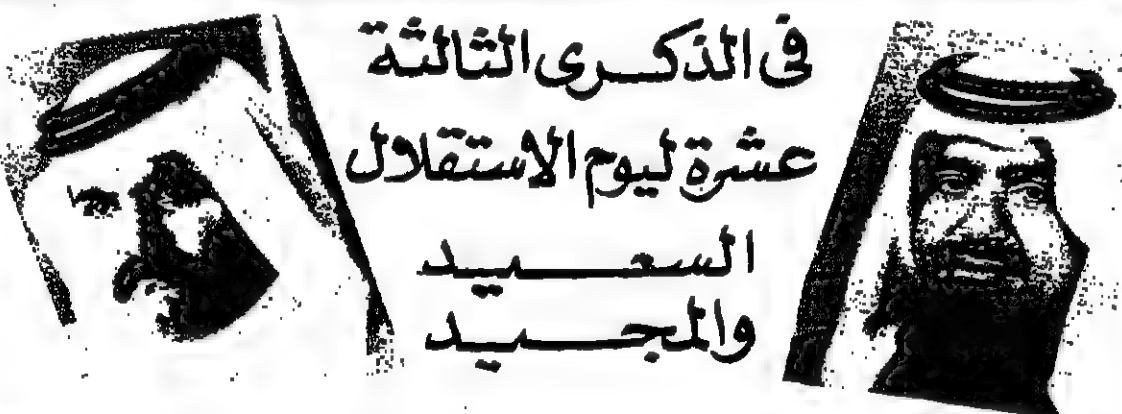 فى الذكرى الثالثة
عشرة ليوم الاستقلال
السعيد
والمجيد